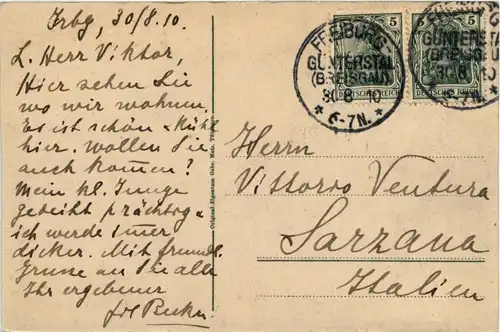 Frbg, 30/8.10.
L. Herr Viktor,
Hier sehen Sie
wo wir wohnen.
Es ist schön & kühl
hier. Wollen Sie
auch kommen?
Mein kl. Junge
gedeiht prächtig &
ich werde imer
dicker. Mit freundl.
Grüsse an Sie alle
Ihr ergebener
FREIBURG
GÜNTERSTAL
(BREISGAU)
30 8 10
* 6-7N. *
5
DEUTSCHES REICH
5
DEUTSCHES REICH
Herrn
Vittorio Ventura
Sarzana
Italien